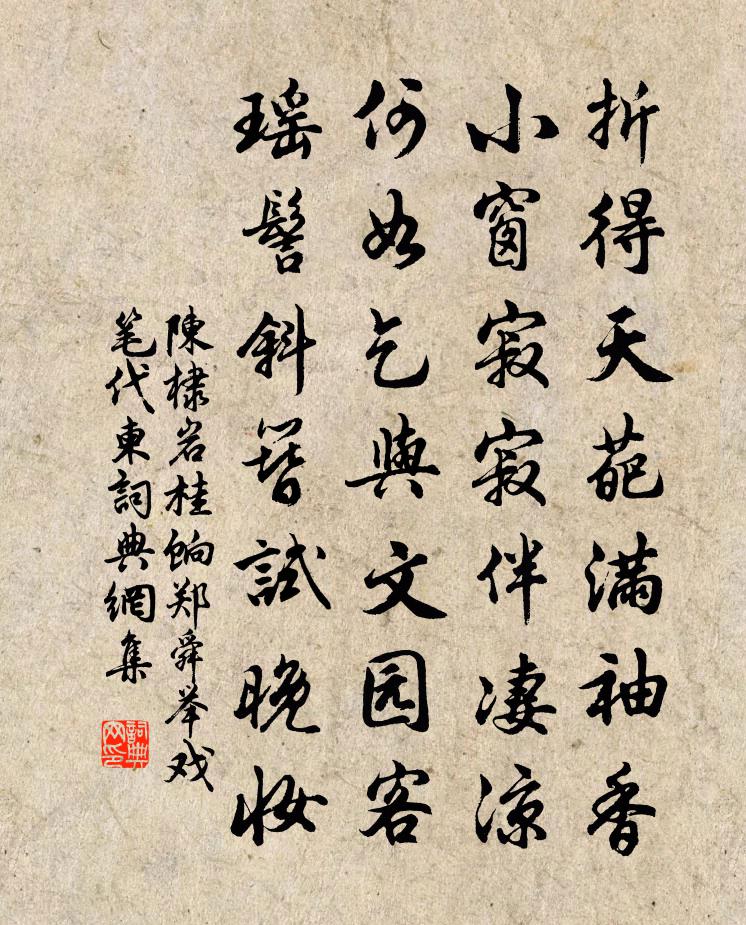 折得天葩满袖香
小窗寂寂伴凄凉
何如乞與文园客
瑶髻斜簪試晚妆
陳棣岩桂餉郑舜举戏
笔代柬詞典網集
詞典网印